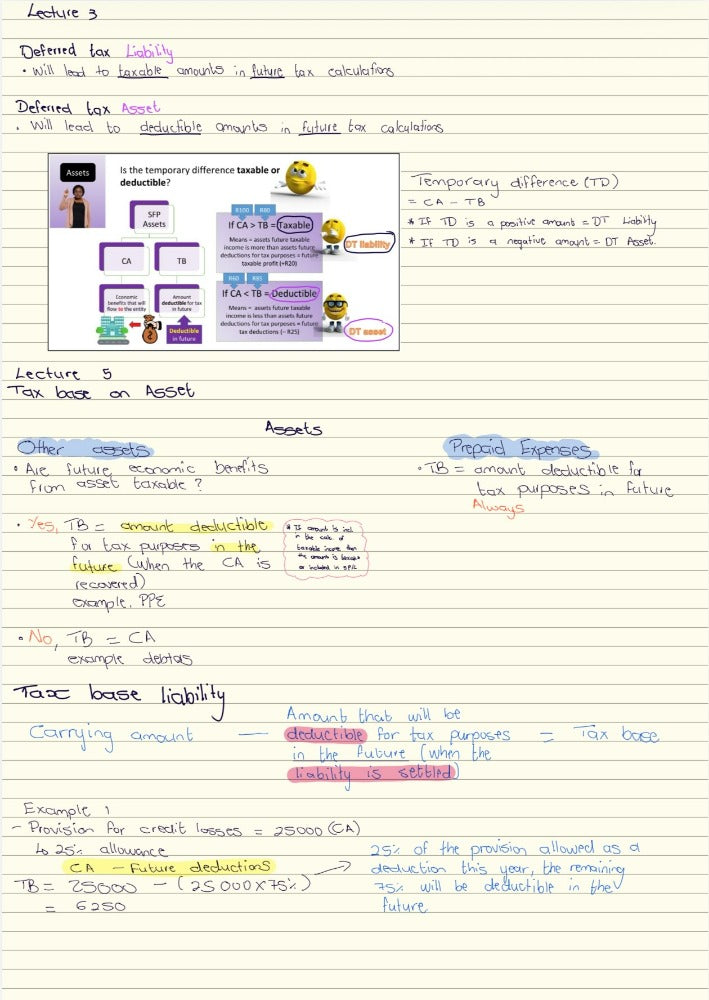 Lecture 3
Deferred tax Liability
• Will lead to taxable amounts in future tax calculations
Deferred tax Asset
• Will lead to deductible amounts in future tax calculations
Assets
Is the temporary difference taxable or
deductible?
SFP
Assets
CA
TB
Economic
benefits that will
flow to the entity
Amount
deductible for tax
in future
Deductible
in future
R100 R80
If CA > TB = Taxable
Means = assets future taxable
income is more than assets future
deductions for tax purposes = future
taxable profit (+R20)
DT liability
R60 R85
If CA < TB = Deductible
Means = assets future taxable
income is less than assets future
deductions for tax purposes = future
tax deductions (– R25)
DT asset
Temporary difference (TD)
= CA - TB
* If TD is a positive amount = DT Liability
* If TD is a negative amount = DT Asset.
Lecture 5
Tax base on Asset
Assets
Other assets
• Are future economic benefits
from asset taxable?
• Yes, TB = amount deductible
for tax purposes in the
future (when the CA is
recovered)
example, PPE
* If amount is incl
in the calc of
taxable income then
the amount is taxable
or included in SPIL
• No, TB = CA
example debtors
Prepaid Expenses
• TB = amount deductible for
tax purposes in future
Always
Tax base liability
Carrying amount — Amount that will be
deductible for tax purposes = Tax base
in the future (when the
liability is settled)
Example 1
- Provision for credit losses = 25000 (CA)
↳ 25% allowance
CA - Future deductions
TB = 25000 - (25000X75%)
= 6250
25% of the provision allowed as a
deduction this year, the remaining
75% will be deductible in the
future